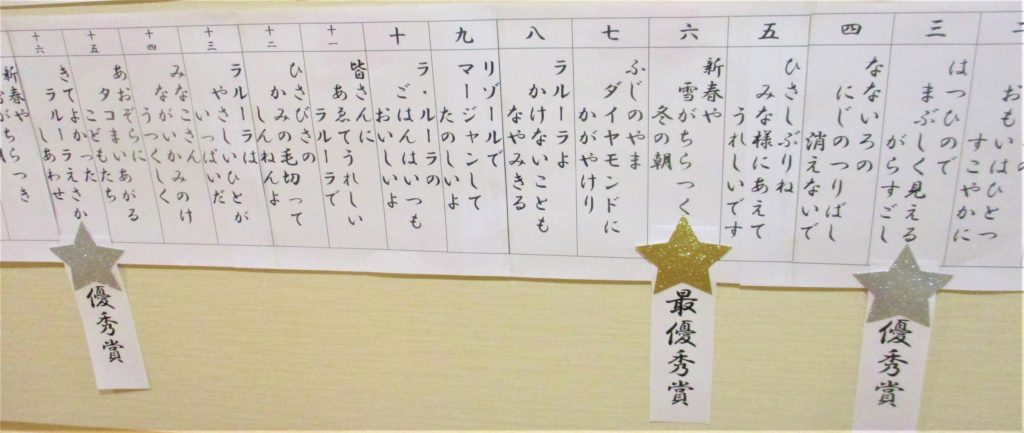 二
おもいはひとつ
すこやかに
三
はつひので
まぶしく見える
がらすごし
四
なないろの
にじのつりばし
消えないで
五
ひさしぶりね
みな様にあえて
うれしいです
六
新春や
雪がちらつく
冬の朝
七
ふじのやま
ダイヤモンドに
かがやけり
八
ラルーラよ
かけないことも
なやみきる
九
リゾールで
マージャンして
たのしいよ
十
ラ・ルーラの
ごはんはいつも
おいしいよ
十一
皆さんに
あゑてうれしい
ラルーラで
十二
ひさびさの
かみの毛切って
しんねんよ
十三
ラルーラは
やさしいひとが
いっぱいだ
十四
みなこさん
ながいかみのけ
うつくしく
十五
あおぞらに
タコまいあがる
こどもたち
十六
きてよかった
ラルーラえさか
しあわせ
新春や
優秀賞
最優秀賞
優秀賞